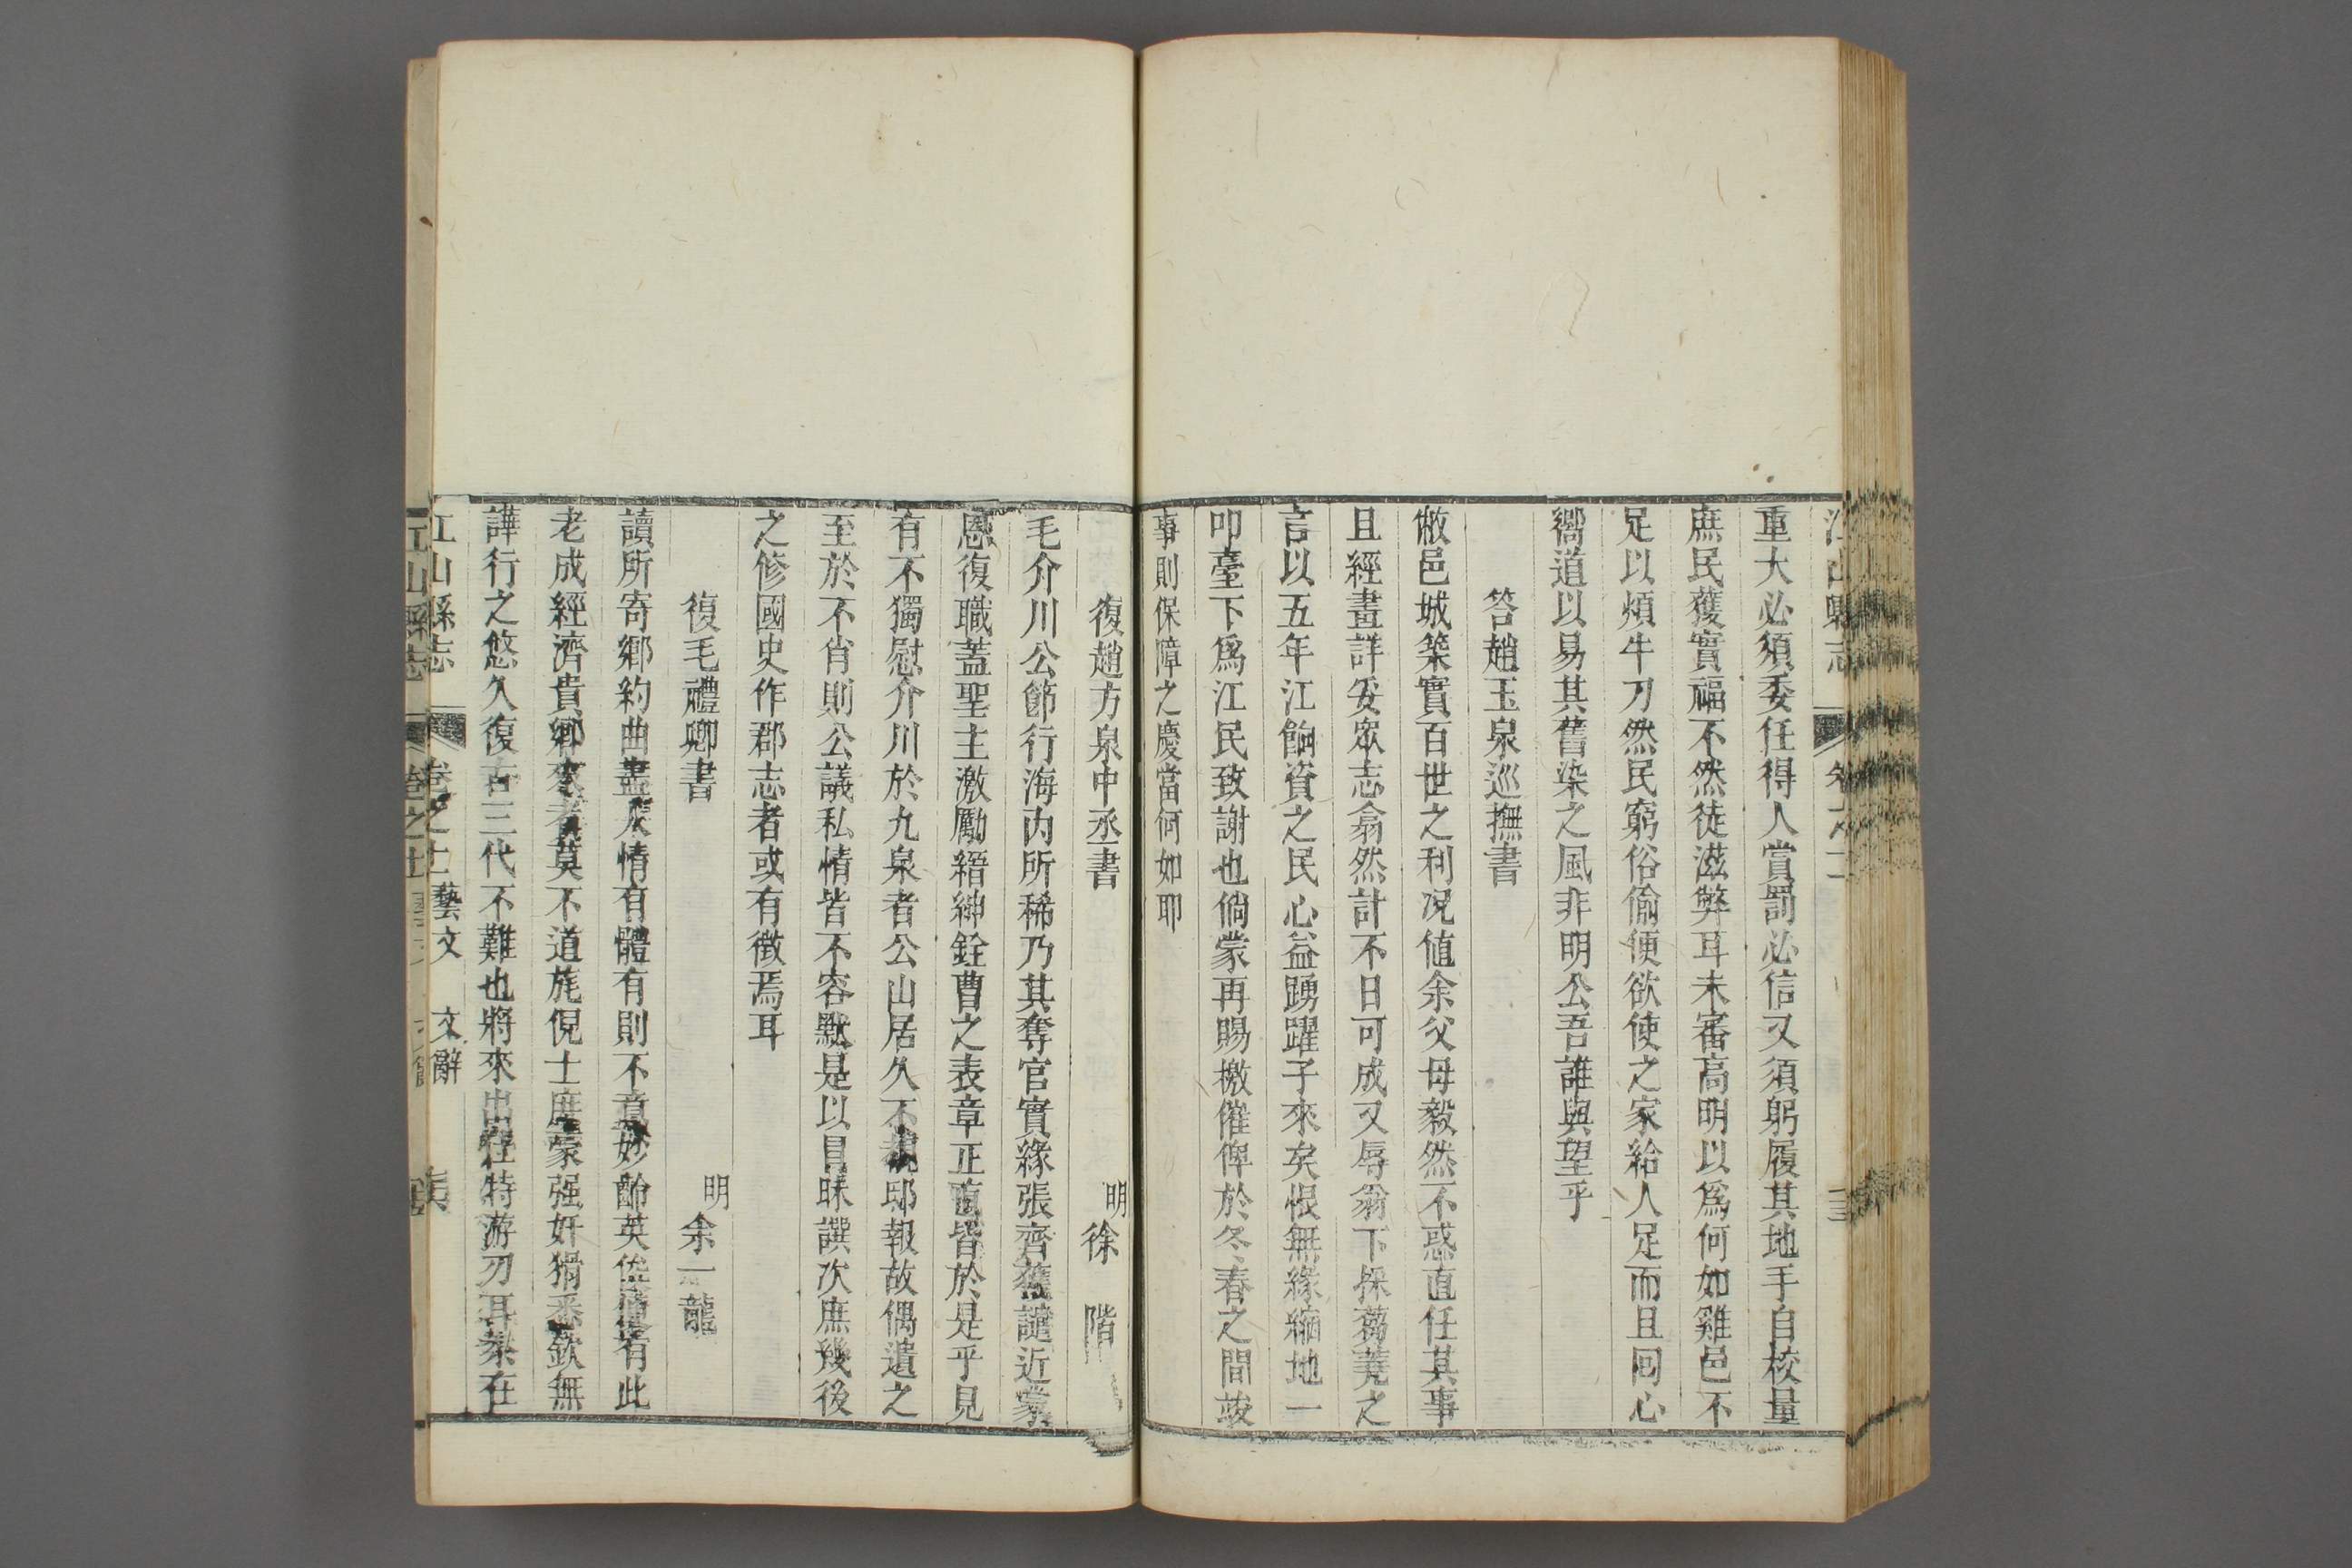 重大必須委任得人賞罰必信又須躬履其地手自校量
庶民獲實福不然徒滋弊耳未審高明以爲何如雞邑不
足以煩牛刀然民窮俗偷便欲使之家給人足而且囘心
嚮道以易其舊染之風非明公吾誰與望乎
答趙玉泉巡撫書
敝邑城築實百世之利况值余父母毅然不惑直任其事
且經畫詳妥眾志翕然計不日可成又辱翁下採蒭蕘之
言以五年江餉資之民心益踴躍子來矣恨無緣縮地一
叩臺下爲江民致謝也倘蒙再賜檄催俾於冬春之間竣
事則保障之慶當何如耶
復趙方泉中丞書 明徐 階
毛介川公節行海内所稀乃其奪官實緣張齊舊譴近蒙
恩復職蓋聖主激勵縉紳銓曹之表章正直皆於是乎見
有不獨慰介川於九泉者公山居久不邸報故偶遺之
至於不肖則公議私情皆不容默是以冐昧譔次庶幾後
之修國史作郡志者或有徴焉耳
復毛禮卿書 明余一龍
讀所寄鄉約曲盡人情有體有則不意妙齡英俊優有此
老成經濟貴鄉來者莫不道旄倪士庶豪强奸猾悉欽無
譁行之悠久復古三代不難也將來出在特游刃耳栥在
江山縣志 卷之十一 藝文 文辭